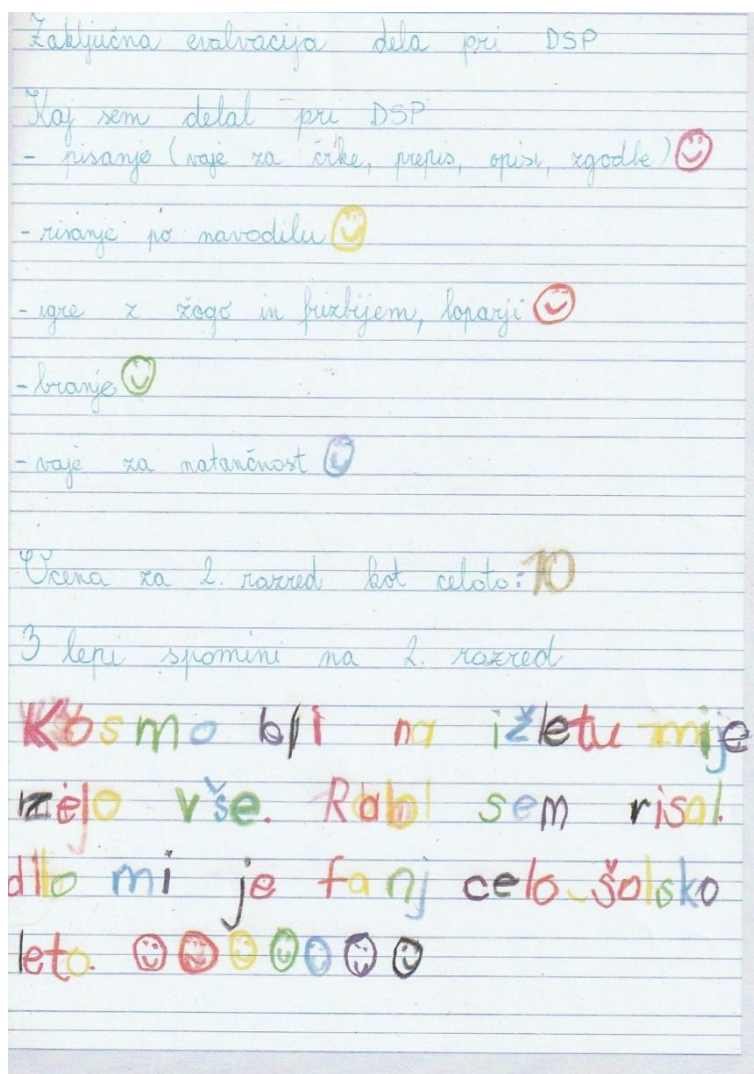 Zaključna evalvacija dela pri DSP
Kaj sem delal pri DSP
- pisanje (vaje za črke, prepis, opisi, zgodbe)
- risanje po navodilu
- igre z žogo in frizbijem, loparji
- branje
- vaje za natančnost
Ocena za 2. razred kot celoto: 10
3 lepi spomini na 2. razred
Kosmo bli na ižletu mije
zelo vše. Rabl sem risal.
dlo mi je fanj celo šolsko
leto.